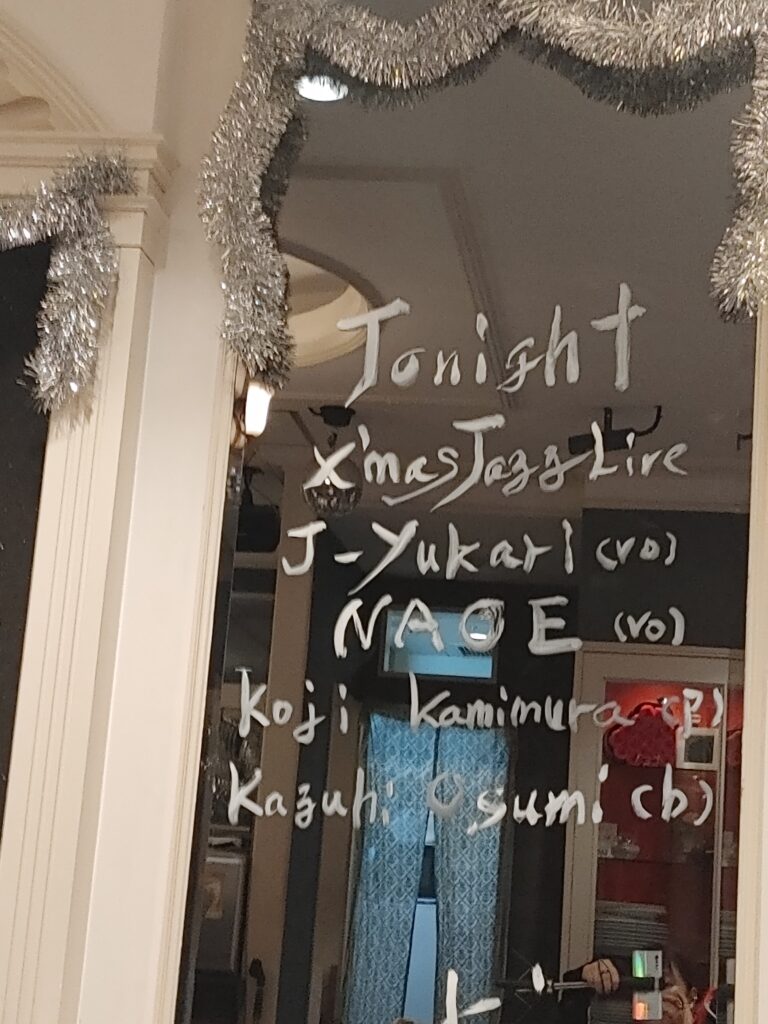 Tonight
X'mas Jazz Live
J-Yukari (vo)
NAOE (vo)
Koji Kamimura (P)
Kazuhi Osumi (b)